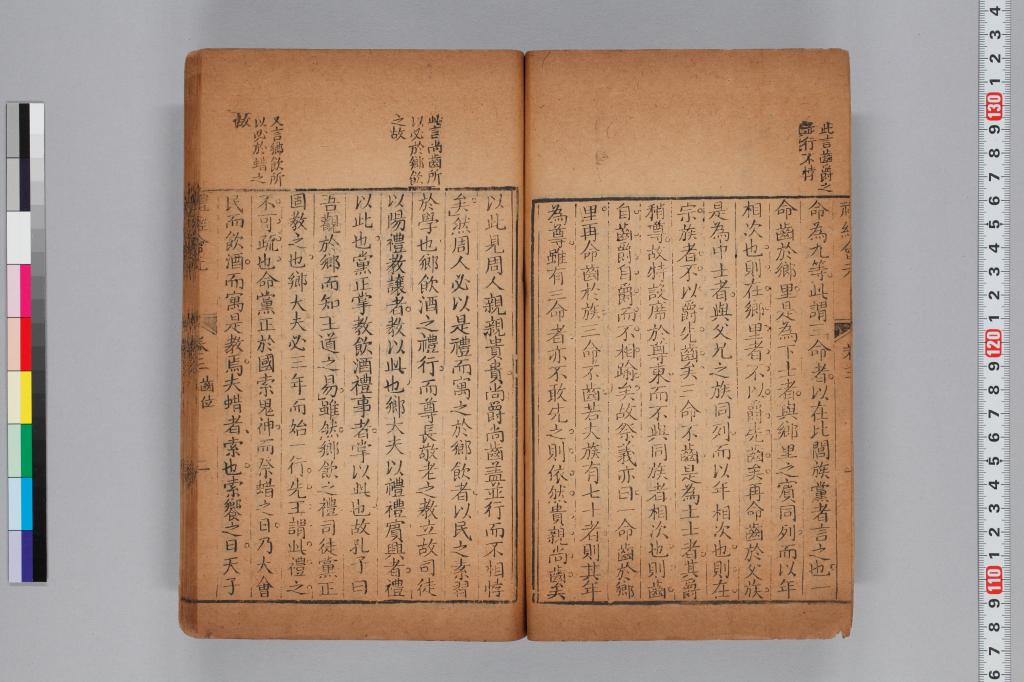 此言齒爵之
並行不悖
命為九等此謂三命者以在比閭族黨者言之也一
命齒於鄉里是為下士者與鄉里之賓同列而以年
相次也則在鄉里者不以爵先齒矣再命齒於父族
是為中士者與父兄之族同列而以年相次也則在
宗族者不以爵先齒矣三命不齒是為上士者其爵
稍尊故特設席於尊東而不與同族者相次也則齒
自齒爵自爵而不相踰矣故祭義亦曰一命齒於鄉
里再命齒於族三命不齒若夫族有七十者則其年
為尊雖有三命者亦不敢先之則依然貴親尚齒矣
此言尚齒所
以必於鄉飲
之故
又言鄉飲所
以必於蜡之
故
以此見周人親親貴貴尚爵尚齒蓋並行而不相悖
矣然周人必以是禮而寓之於鄉飲者以民之素習
於學也鄉飲酒之禮行而尊長敬老之教立故司徒
以陽禮教讓者教以此也鄉大夫以禮禮賓興者禮
以此也黨正掌教飲酒禮事者掌以此也故孔子曰
吾觀於鄉而知王道之易雖然鄉飲之禮司徒黨正
固教之也鄉大夫必三年而始一行先王謂此禮之
不可疏也命黨正於國索鬼神而祭蜡之日乃大會
民而飲酒而寓是教焉夫蜡者索也索饗之日天子
卷三 齒位 一